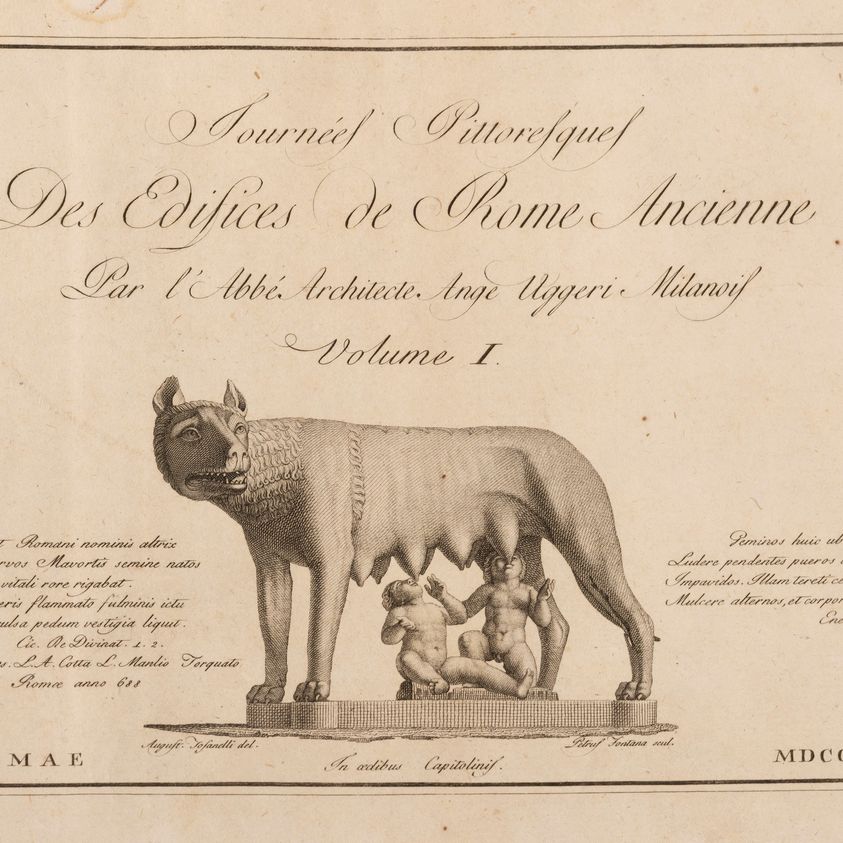 Journées Pittoresques
Des Edifices de Rome Ancienne
Par l'Abbé Architecte Ange Uggeri Milanois
Volume I.
Romani nominis altrix
Mavortis semine natos
vitali rore rigabat.
flammato fulminis ictu
pedum vestigia liquit.
Cic. De Divinat. 1. 2.
L. A. Cotta L. Manlio Torquato
Romæ anno 688
Geminos huic
Ludere pendentes pueros
Impavidos. Illam tereti
Mulcere alternos, et
August. Tofanelli del.
Petrus Fontana scul.
In ædibus Capitolinis.
MAE
MDCC